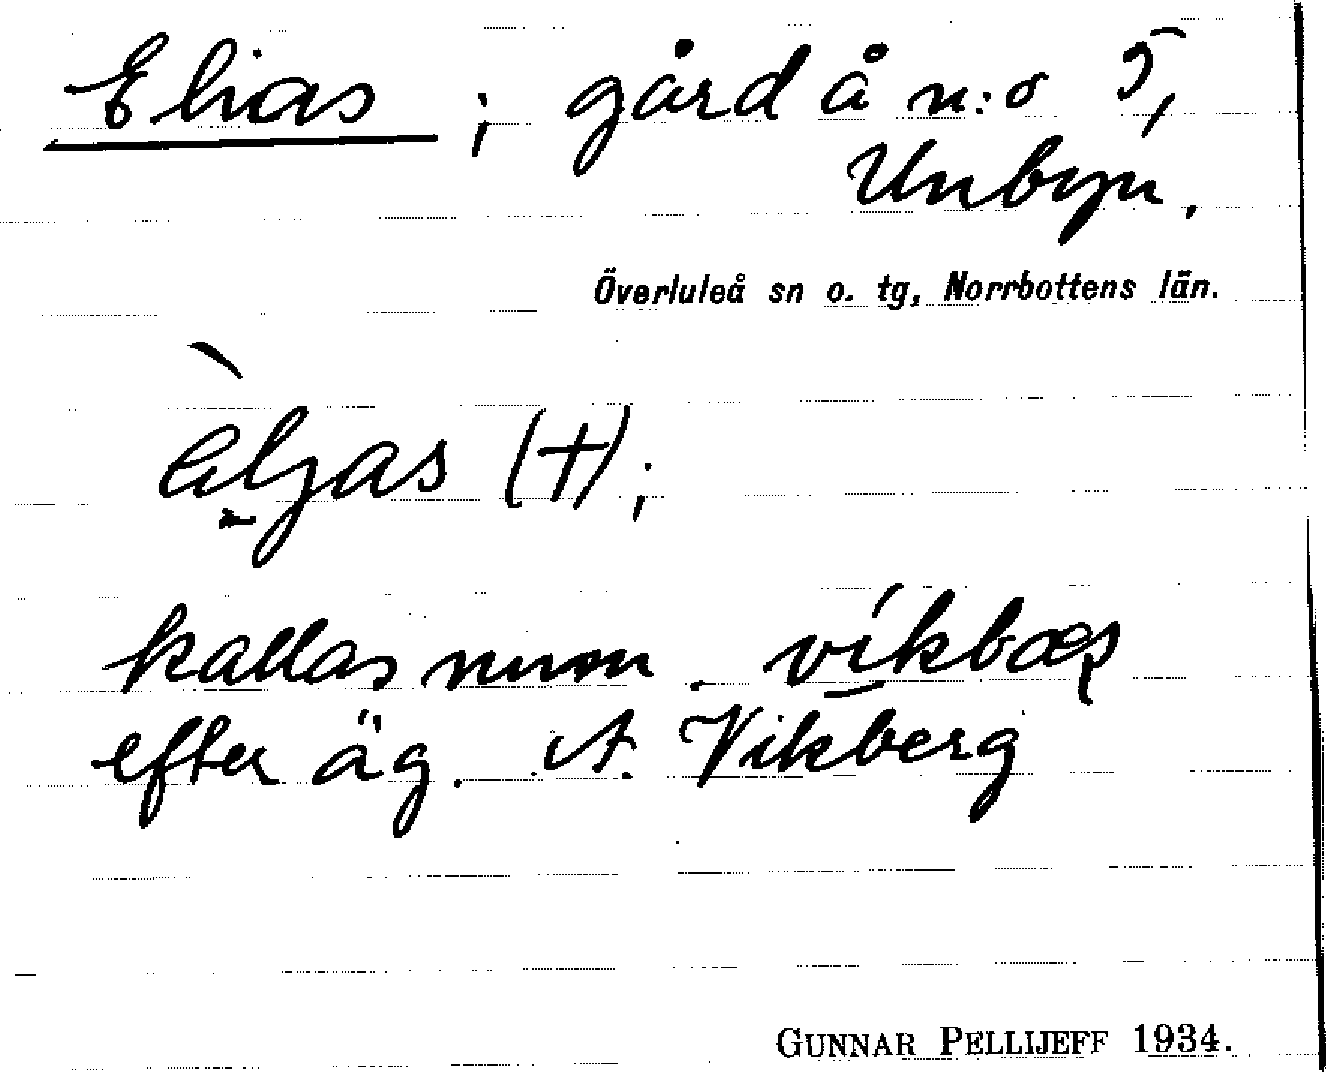 Elias ; gård å n:o 5,
Unbyn.
Överluleå sn o. tg, Norrbottens län.
èl̠jas (†);
kallas num. víkbæʂ
efter äg. A. Vikberg
GUNNAR PELLIJEFF 1934.